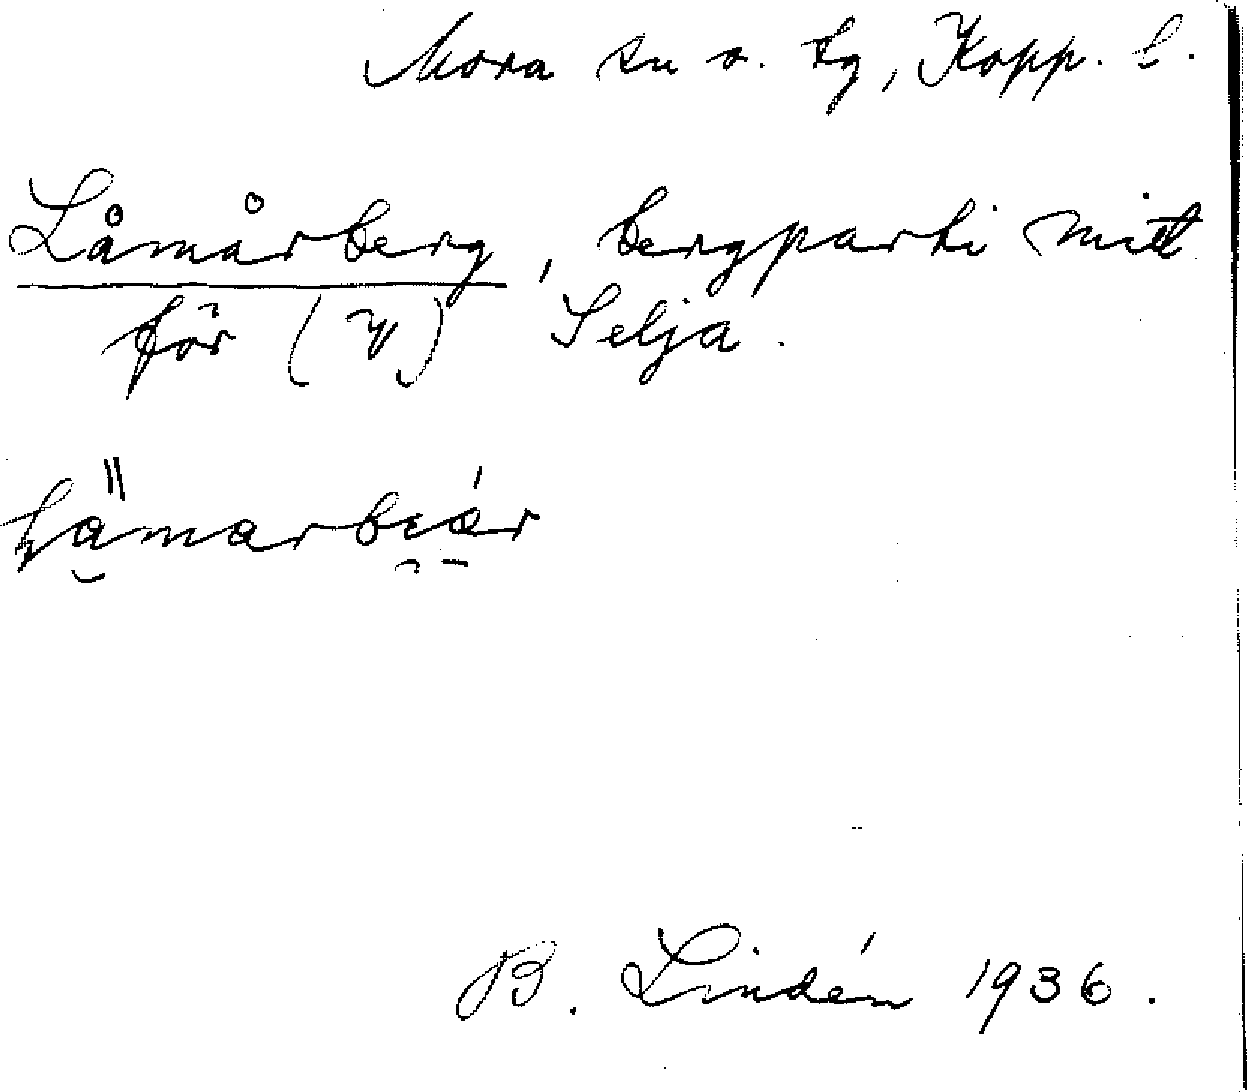 Mora sn o. tg, Kopp. l.
Låmårberg, bergparti mitt
för (V) Selja.
B. Lindén 1936.